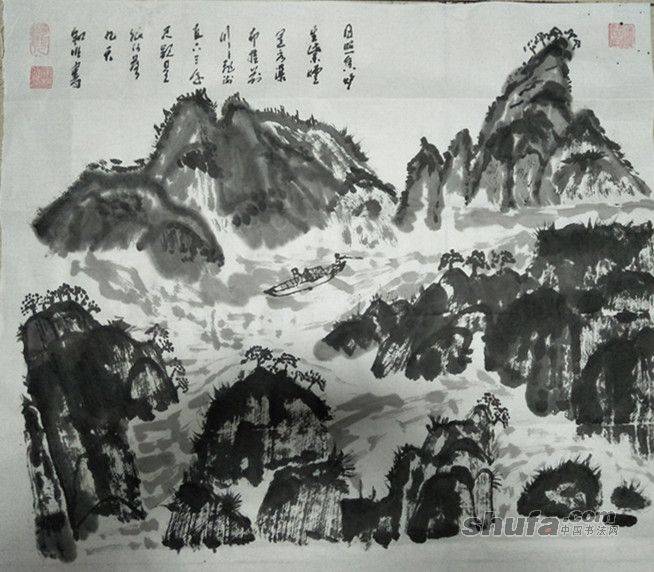 日照香炉
生紫煙
遥看瀑
布挂前
川飞流
直下三千
尺疑是
银河落
九天
shufa.com
中国书法网